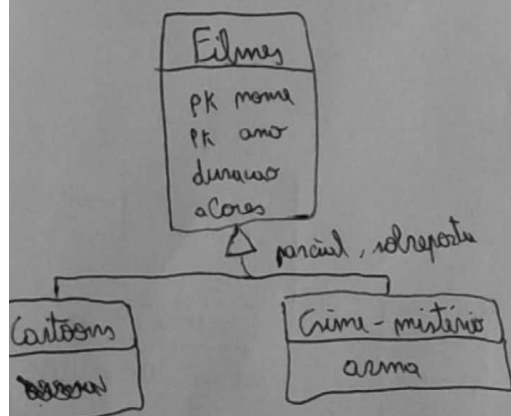 Filmes
PK nome
PK ano
duracao
aCores
parcial, sobreposta
Cartoons
Crime-mistério
arma